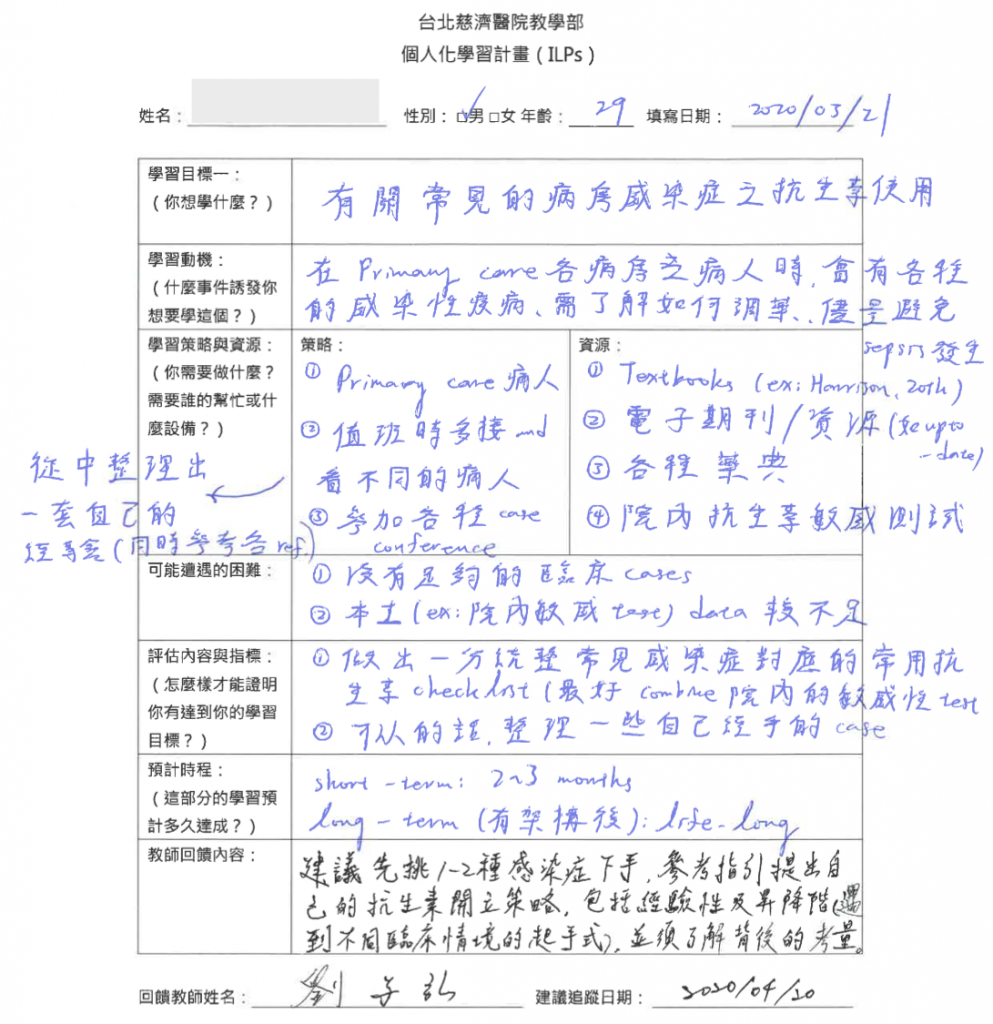 台北慈濟醫院教學部
個人化學習計畫（ILPs）
姓名： 性別：☑男 □女 年齡：29 填寫日期：2020/03/21
學習目標一：
（你想學什麼？）
有關常見的病房感染症之抗生素使用
學習動機：
（什麼事件誘發你
想要學這個？）
在 Primary care 各病房之病人時，會有各種
的感染性疫病、需了解如何調藥、儘量避免
sepsis 發生
學習策略與資源：
（你需要做什麼？
需要誰的幫忙或什
麼設備？）
策略：
① Primary care 病人
② 值班時多接 and
看不同的病人
③ 參加各種 case
conference
從中整理出
一套自己的
經驗(同時參考各 ref.)
資源：
① Textbooks (ex: Harrison, 20th)
② 電子期刊/資源(如 upto
-date)
③ 各種藥典
④ 院內抗生素敏感測試
可能遭遇的困難：
① 沒有足夠的臨床 cases
② 本土(ex: 院內敏感 test) data 較不足
評估內容與指標：
（怎麼樣才能證明
你有達到你的學習
目標？）
① 做出一份統整常見感染症對應的常用抗
生素 checklist (最好 combine 院內的敏感性 test
② 可以的話，整理一些自己經手的 case
預計時程：
（這部分的學習預
計多久達成？）
short-term: 2~3 months
long-term (有架構後): life-long
教師回饋內容：
建議先挑1-2種感染症下手，參考指引提出自
己的抗生素開立策略，包括經驗性及昇降階(遇
到不同臨床情境的起手式)，並須了解背後的考量。
回饋教師姓名：劉子弘 建議追蹤日期：2020/04/20